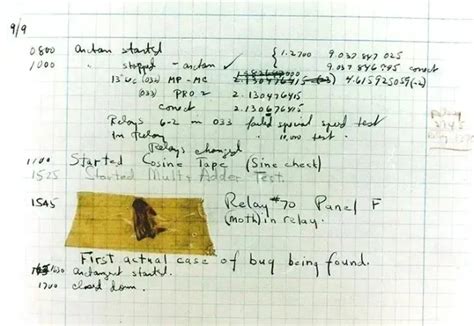 9/9
0800 arctan started { 1.2700 9.037 847 025
1000 " stopped - arctan ✓ 9.037 846 995 correct
13"uc (033) MP - MC 2.130476415 (-3) 4.615925059(-2)
(033) PRO 2 2.130476415
correct 2.130676415
Relays 6-2 in 033 failed special speed test
in relay " 10.000 test.
Relays changed
1100 Started Cosine Tape (Sine check)
1525 Started Mult+ Adder Test.
1545 Relay #70 Panel F
(moth) in relay.
First actual case of bug being found.
1630 arctangent started.
1700 closed down.
Relay